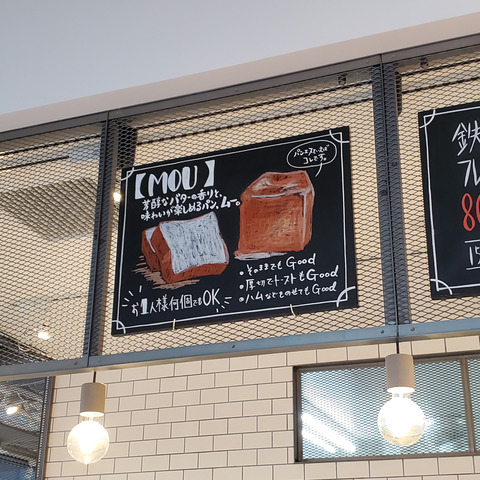 【MOU】
芳醇なバターの香りと、
味わいが楽しめるパン、ムー。
パンエスといえば
コレでしょ。
・そのままでもGood
・厚切りでトーストもGood
・ハムなどものせてもGood
お1人様何個でもOK
鉄
フレ
80